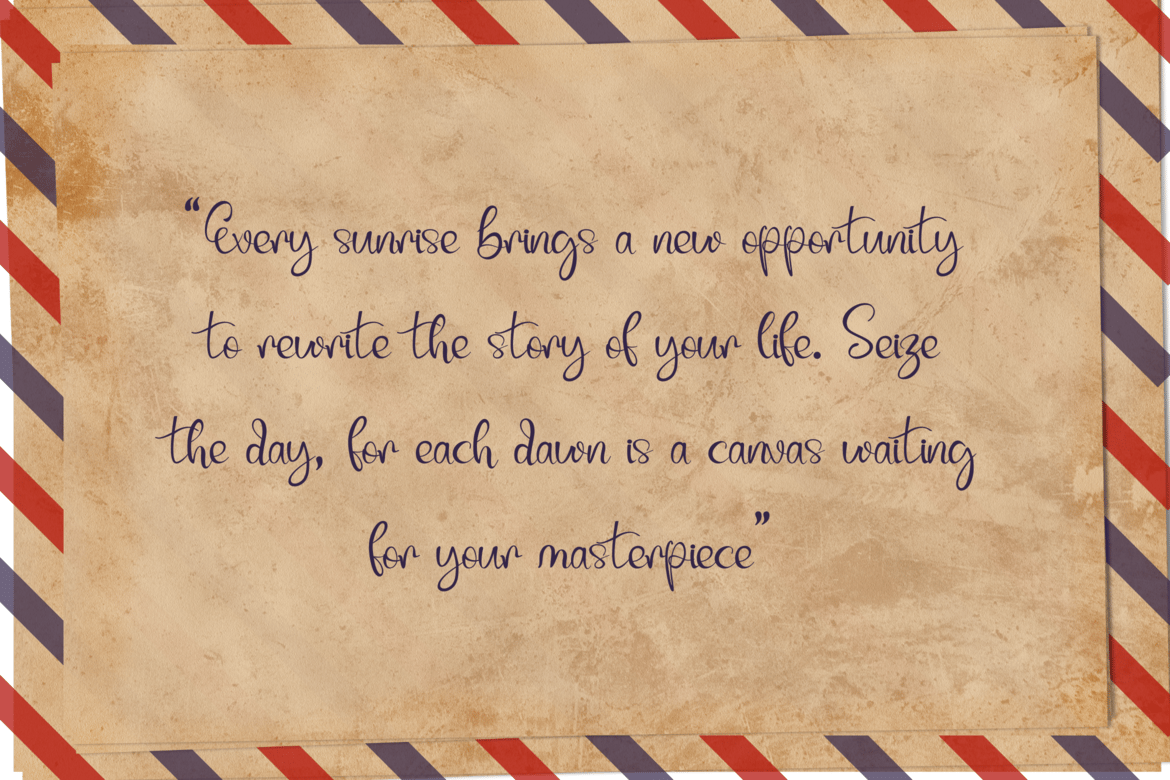 “Every sunrise brings a new opportunity
to rewrite the story of your life. Seize
the day, for each dawn is a canvas waiting
for your masterpiece”